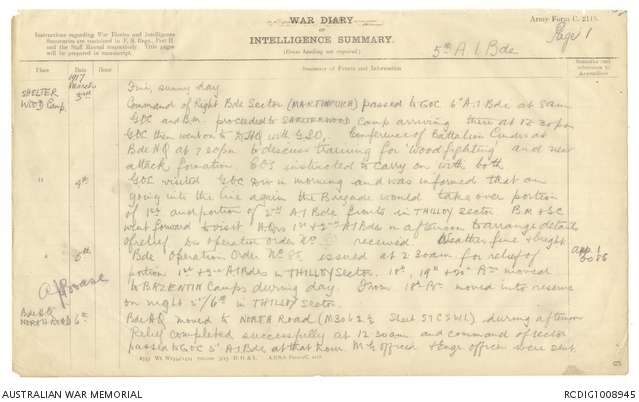 WAR DIARY
OF
INTELLIGENCE SUMMARY.
(Erase heading not required)
Army Form C. 2118.
Page 1
Instructions regarding War Diaries and Intelligence
Summaries are contained in F. S. Regs., Part II.
and the Staff Manual respectively. Title pages
will be prepared in manuscript.
5th A. I. Bde
Place
Date
Hour
Summary of Events and Information
Remarks and
references to
Appendices
SHELTER WOOD Camp.
1917 March 3rd
Fine, sunny day
Command of Right Bde Sector (MARTINPUICH) passed to GOC 6th A.I. Bde at 8am
GOC and B.M. proceeded to SHELTER WOOD Camp arriving there at 12.30pm
GOC then went on to DHQ with GSO. Conference of Battalion Cmders at
Bde HQ at 7.30pm to discuss training for 'wood fighting' and new
attack formation. COs instructed to carry on with both
" 4th
GOC visited GOC Div in morning and was informed that on
going into the line again the Brigade would take over portion
of 1st and portion of 2nd A.I. Bde fronts in THILLOY Sector. B.M. & S.C.
went forward to visit HQrs 1st & 2nd A.I. Bdes in afternoon to arrange details
of relief. Div Operation Order No received. Weather fine & bright
" 5th
Bde Operation Order No. 85 issued at 2.30am for relief of
portion 1st & 2nd A.I. Bdes in THILLOY Sector. 18th, 19th & 20th Bns moved
to BAZENTIN Camps during day. From 18th Bn moved into reserve
on night 5th/6th in THILLOY Sector.
app. 1
OO 85
Bde HQ NORTH ROAD 6th
Bde HQ moved to NORTH ROAD (M30 Sheet 57C SW) during afternoon
Relief completed successfully at 12.30am and command of sector
passed to GOC 5th A.I. Bde at that hour. M.G. Officer & Engr officer were sent
AUSTRALIAN WAR MEMORIAL
RCDIG1008945